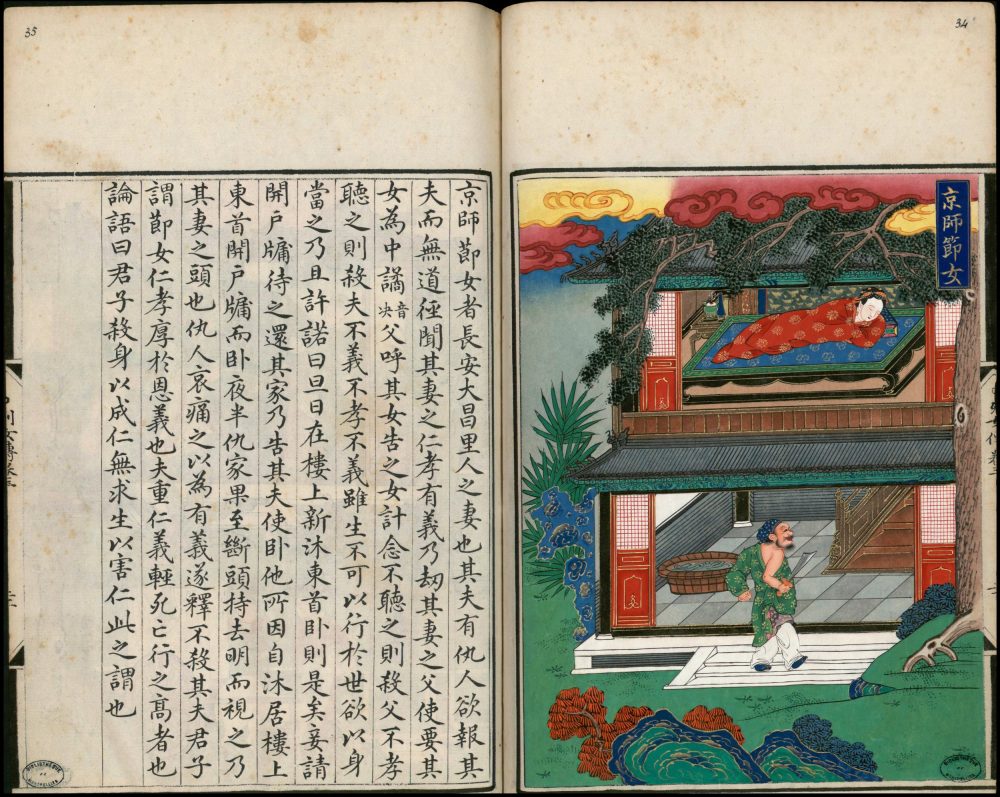 34
京師節女
35
京師節女者長安大昌里人之妻也其夫有仇人欲報其
夫而無道徑聞其妻之仁孝有義乃刼其妻之父使要其
女為中譎音决父呼其女告之女計念不聽之則殺父不孝
聽之則殺夫不義不孝不義雖生不可以行於世欲以身
當之乃且許諾曰旦日在樓上新沐東首卧則是矣妾請
開户牖待之還其家乃告其夫使卧他所因自沐居樓上
東首開户牖而卧夜半仇家果至斷頭持去明而視之乃
其妻之頭也仇人哀痛之以為有義遂釋不殺其夫君子
謂節女仁孝厚於恩義也夫重仁義輕死亡行之高者也
論語曰君子殺身以成仁無求生以害仁此之謂也